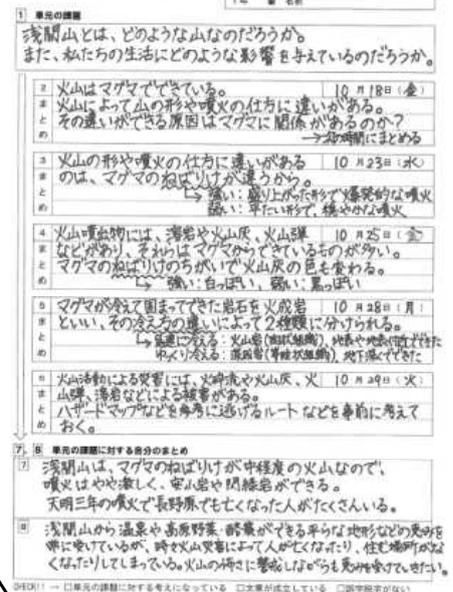 1 単元の課題
浅間山とは、どのような山なのだろうか。
また、私たちの生活にどのような影響を与えているのだろうか。
2 まとめ
火山はマグマでできている。
10月18日(金)
火山によって山の形や噴火の仕方に違いがある。
その違いができる原因はマグマに関係があるのか?
→次の時間にまとめる
3 まとめ
火山の形や噴火の仕方に違いがある
10月23日(水)
のは、マグマのねばりけが違うから。
強い:盛り上がった形で爆発的な噴火
弱い:平たい形で、穏やかな噴火
4 まとめ
火山噴出物には、溶岩や火山灰、火山弾
10月25日(金)
などがあり、それらはマグマからできているものが多い。
マグマのねばりけのちがいで火山灰の色も変わる。
強い:白っぽい、弱い:黒っぽい
5 まとめ
マグマが冷えて固まってできた岩石を火成岩
10月28日(月)
といい、その冷え方の違いによって2種類に分けられる。
急速に冷える:火山岩(斑状組織)、地表や地表付近でできた
ゆっくり冷える:深成岩(等粒状組織)、地下深くでできた
6 まとめ
火山活動による災害には、火砕流や火山灰、火
10月29日(火)
山弾、溶岩などによる被害がある。
ハザードマップなどを参考に逃げるルートなどを事前に考えて
おく。
7、8 単元の課題に対する自分のまとめ
7
浅間山は、マグマのねばりけが中程度の火山なので、
噴火はやや激しく、安山岩や閃緑岩ができる。
天明三年の噴火で長野原でも亡くなった人がたくさんいる。
8
浅間山から温泉や高原野菜・酪農ができる平らな地形などの恵みを
常に受けているが、時々火山災害によって人が亡くなったり、住む場所がな
くなったりしてしまっている。火山の怖さに警戒しながらも恵みを受けていきたい。
CHECK!! → □単元の課題に対する考えになっている □文章が成立している □誤字脱字がない